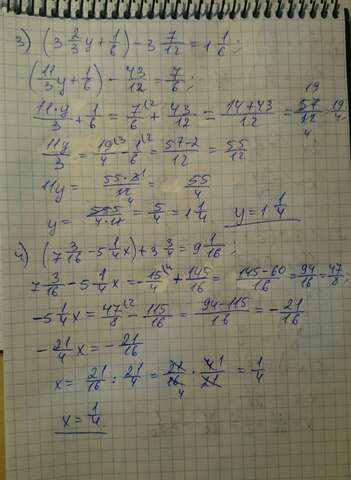 3) (3 2/3 y + 1/6) - 3 7/12 = 1 1/6;
(11/3 y + 1/6) - 43/12 = 7/6;
11·y/3 + 1/6 = 7/6 (2 + 43/12 = 14+43/12 = 57/12 = 19/4;
11y/3 = 19/4 (3 - 1/6 (2 = 57-2/12 = 55/12
11y = 55·3/12 = 55/4
y = 555/4·11 = 5/4 = 1 1/4 y = 1 1/4
4) (7 3/16 - 5 1/4 x) + 3 3/4 = 9 1/16;
7 3/16 - 5 1/4 x = -15/4 (4 + 145/16 = 145-60/16 = 94/16 = 47/8;
-5 1/4 x = 47/8 (2 - 115/16 = 94-115/16 = -21/16
-21/4 x = -21/16
x = 21/16 : 21/4 = 21/16 · 4/21 = 1/4
x = 1/4